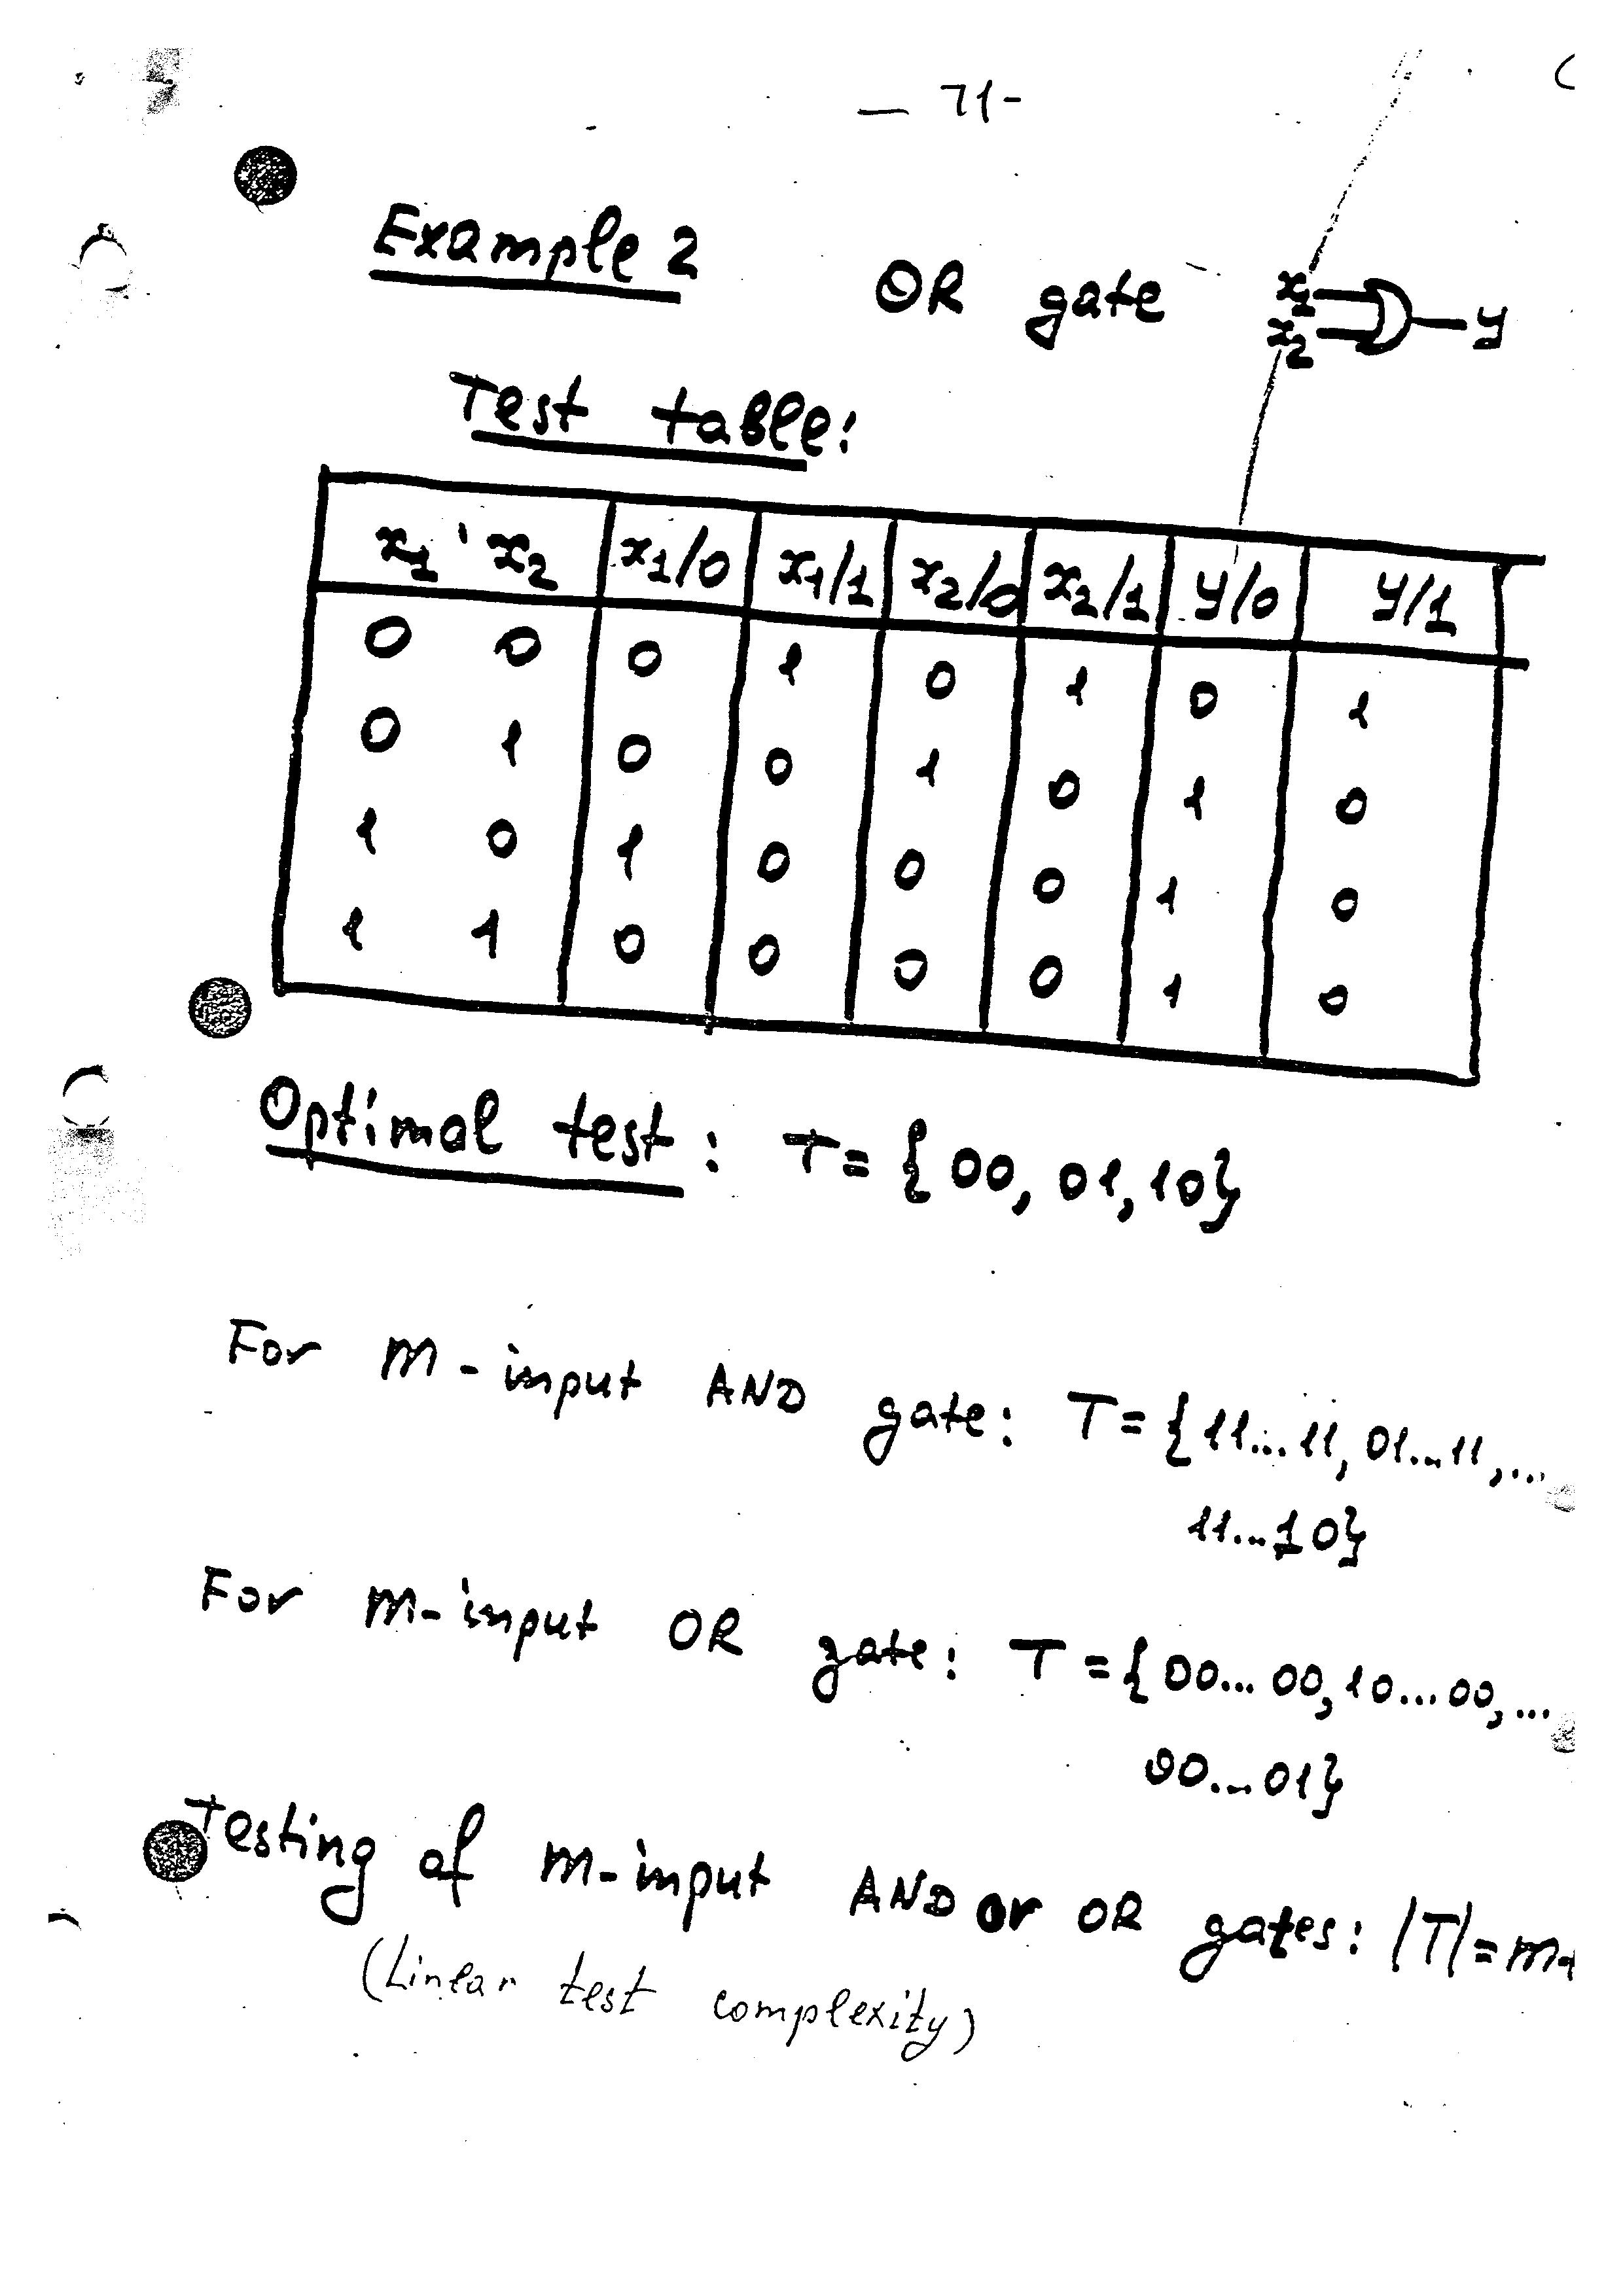 — 71-
Example 2 OR gate x1 x2 y
Test table:
x1 x2 x1/0 x1/1 x2/0 x2/1 y/0 y/1
0 0 0 1 0 1 0 1
0 1 0 0 1 0 1 0
1 0 1 0 0 0 1 0
1 1 0 0 0 0 1 0
Optimal test: T= {00, 01, 10}
For m-input AND gate: T= {11...11, 01...11, ...
11...10}
For m-input OR gate: T= {00...00, 10...00, ...
00...01}
Testing of m-input AND or OR gates: |T|= m
(Linear test complexity)